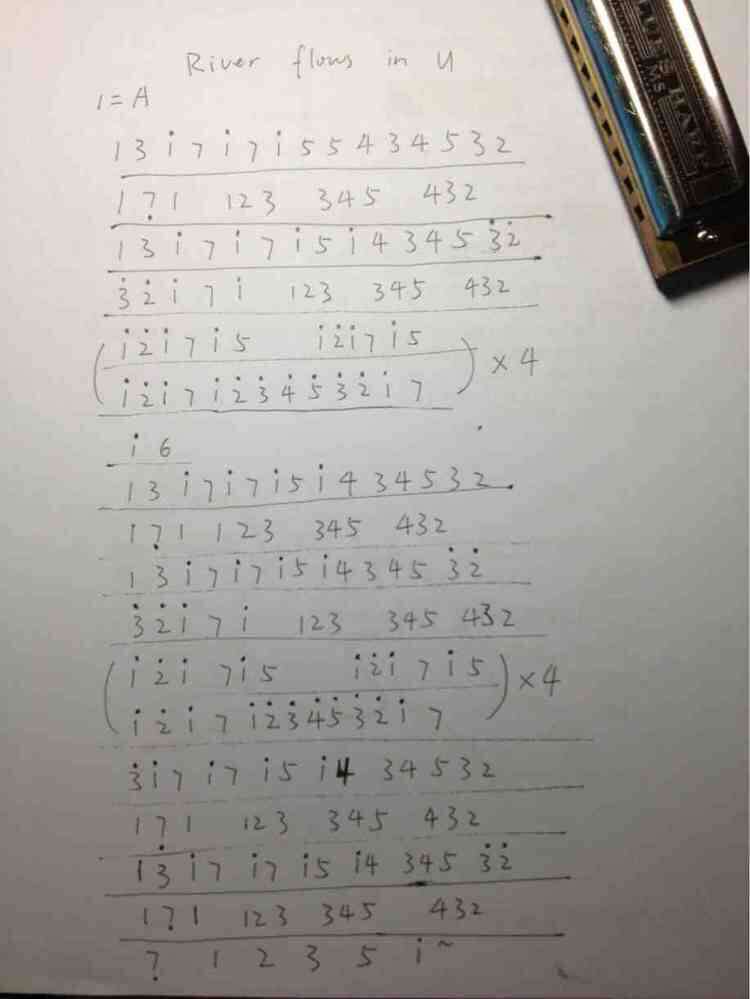 River flows in U
1=A
1 3 i 7 i 7 i 5 5 4 3 4 5 3 2
1 7̣ 1 123 345 432
1 3 i 7 i 7 i 5 i 4 3 4 5 3̇ 2̇
3̇ 2̇ i 7 i 123 345 432
( i 2̇ i 7 i 5 i 2̇ i 7 i 5
i 2̇ i 7 i 2̇ 3̇ 4̇ 5̇ 3̇ 2̇ i 7 ) × 4
i 6
1 3 i 7 i 7 i 5 i 4 3 4 5 3 2
1 7̣ 1 123 345 432
1 3 i 7 i 7 i 5 i 4 3 4 5 3̇ 2̇
3̇ 2̇ i 7 i 123 345 432
( i 2̇ i 7 i 5 i 2̇ i 7 i 5
i 2̇ i 7 i 2̇ 3̇ 4̇ 5̇ 3̇ 2̇ i 7 ) × 4
3̇ i 7 i 7 i 5 i 4 3 4 5 3 2
1 7̣ 1 123 345 432
1 3 i 7 i 7 i 5 i 4 345 3̇ 2̇
1 7̣ 1 123 345 432
7̣ 1 2 3 5 i ~
BLUES HARP
MS